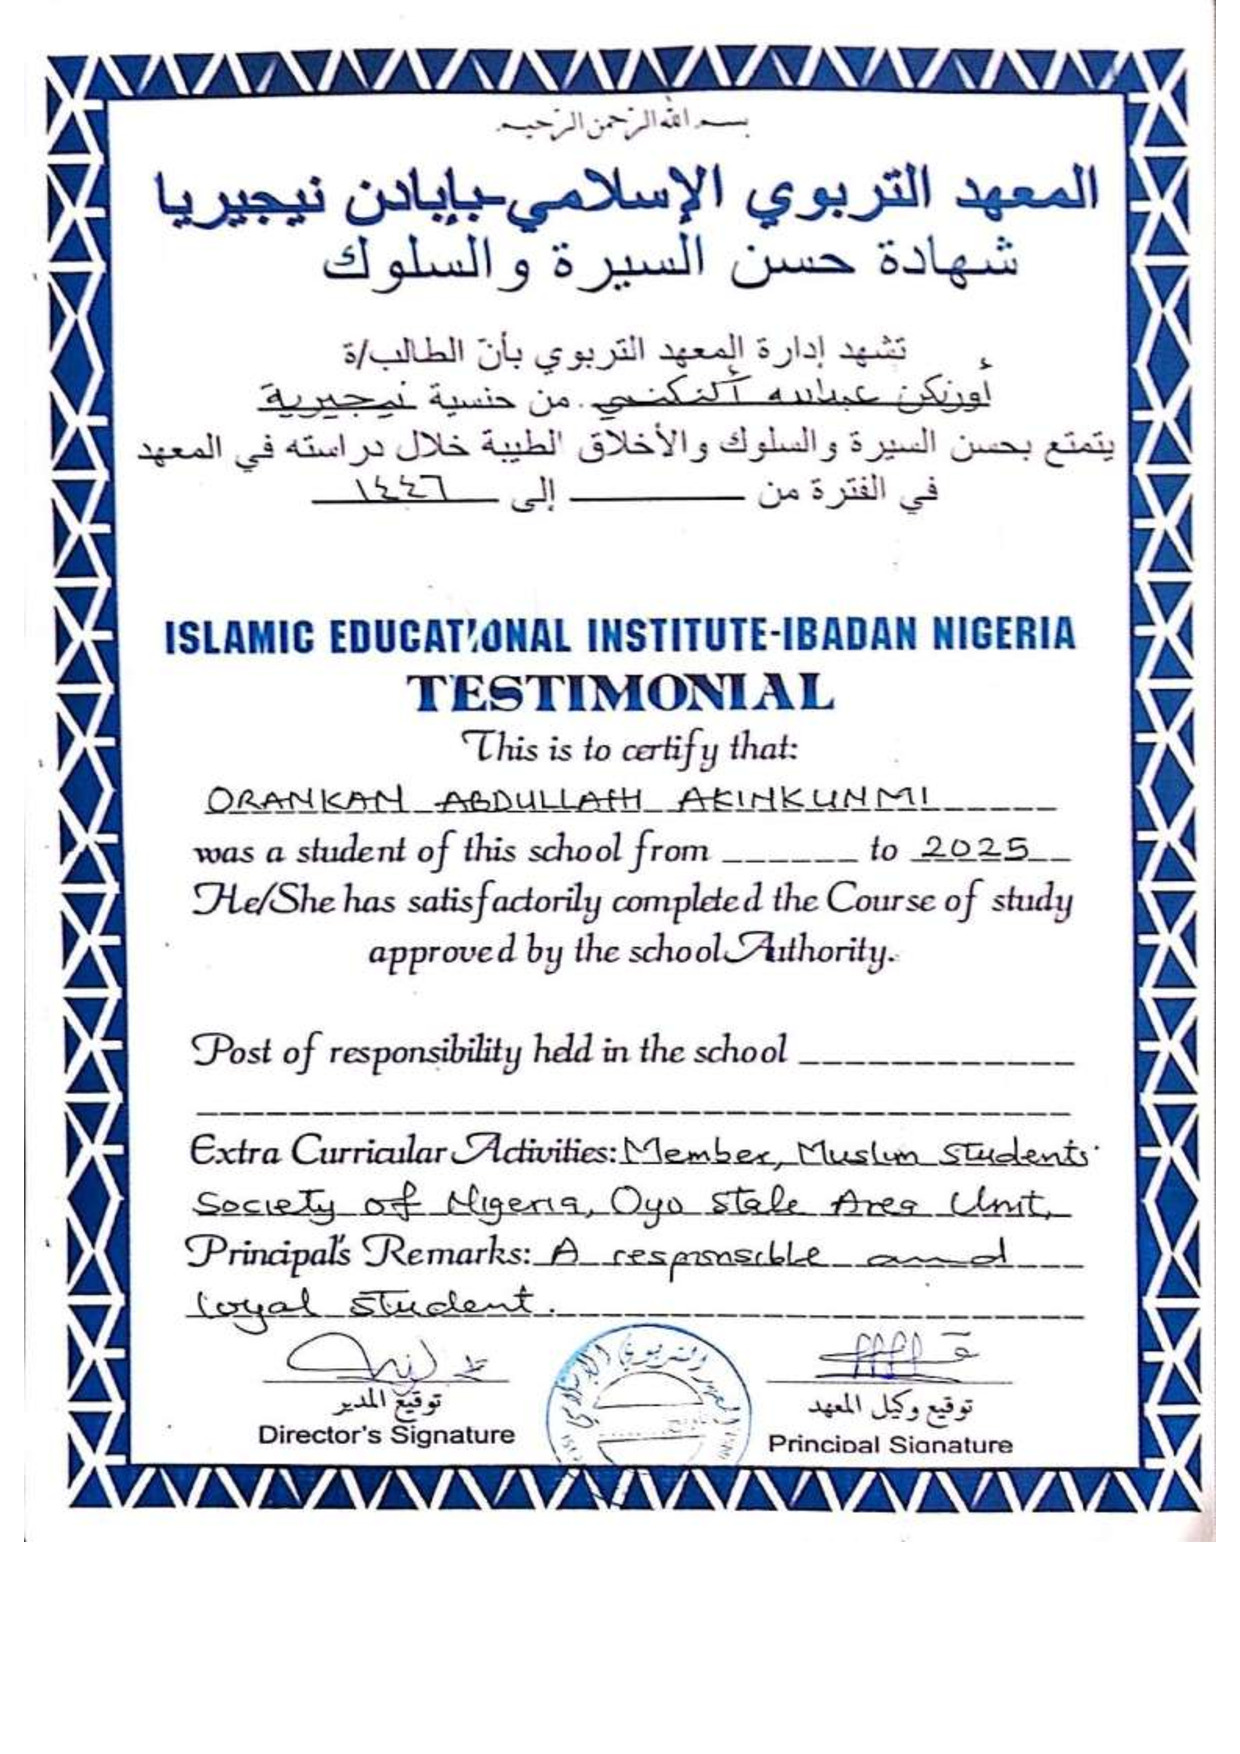 بسم الله الرحمن الرحيم
المعهد التربوي الإسلامي-بإبادن نيجيريا
شهادة حسن السيرة والسلوك
تشهد إدارة المعهد التربوي بأن الطالب/ة
أورنكن عبدالله أكنكنمي من جنسية نيجيرية
يتمتع بحسن السيرة والسلوك والأخلاق الطيبة خلال دراسته في المعهد
في الفترة من ــــــــ إلى ١٤٤٦
ISLAMIC EDUCATIONAL INSTITUTE-IBADAN NIGERIA
TESTIMONIAL
This is to certify that:
ORANKAN ABDULLAHI AKINKUNMI
was a student of this school from ______ to 2025
He/She has satisfactorily completed the Course of study
approved by the school Authority.
Post of responsibility held in the school ____________
Extra Curricular Activities: Member, Muslim Students'
Society of Nigeria, Oyo State Area Unit,
Principal's Remarks: A responsible and
loyal student.
توقيع المدير
Director's Signature
المعهد التربوي الإسلامي
توقيع وكيل المعهد
Principal Signature